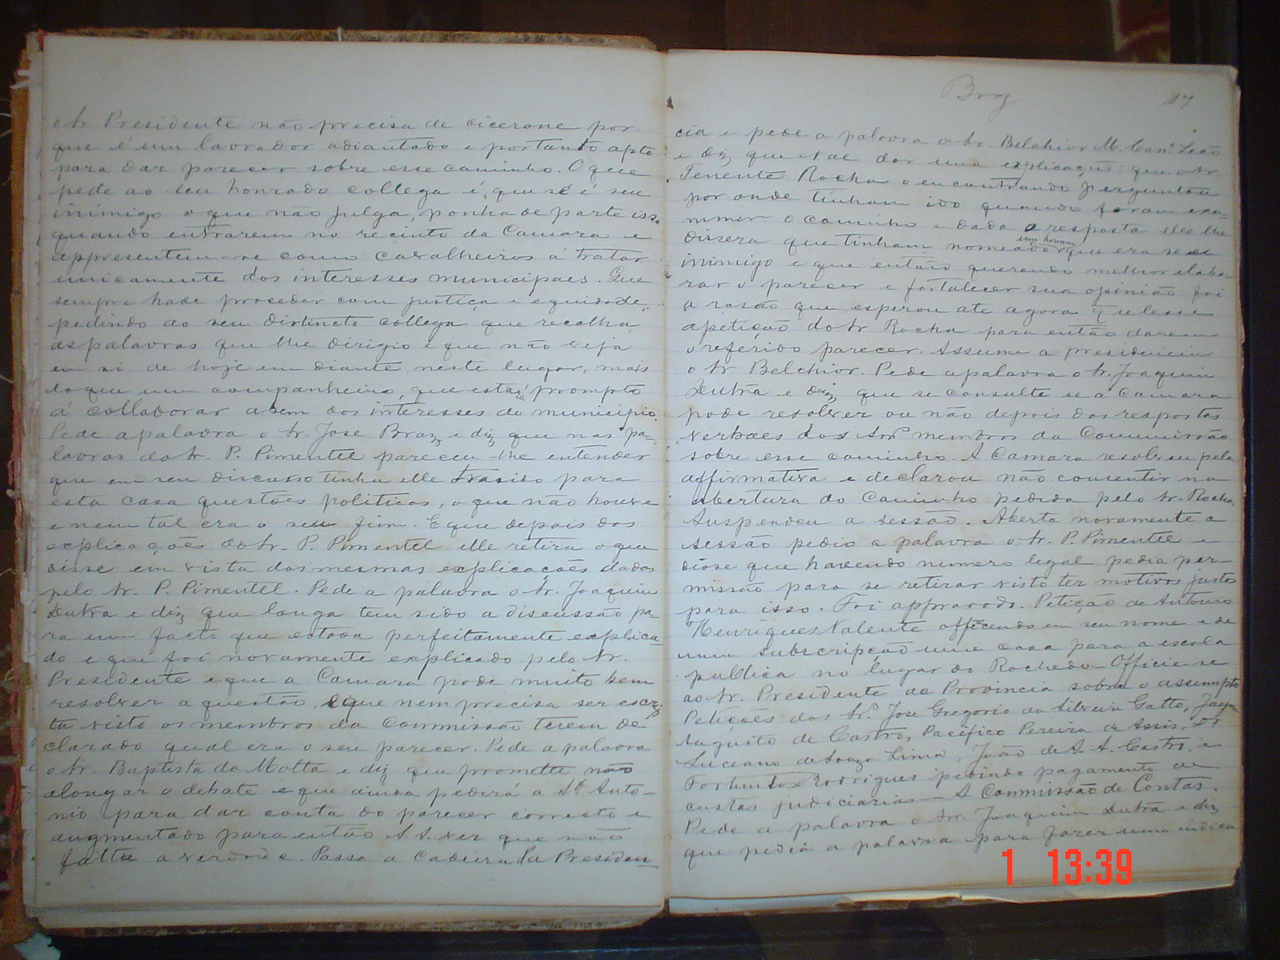 o Sr. Presidente não precisa de cicerone por
que é um lavrador adiantado e portanto apto
para dar parecer sobre esse caminho. O que
pede ao seu honrado collega é, que se é seu
inimigo o que não julga, ponha de parte isso
quando entrarem no recinto da Camara e
appresentem-se como cavalheiros a tratar
unicamente dos interesses municipaes. Que
sempre hade proceder com justiça e equidade,
pedindo ao seu distincto collega que recolha
as palavras que lhe dirigio e que não veja
em si de hoje em diante, neste lugar, mais
do que um companheiro, que está prompto
á collaborar a bem dos interesses do municipio.
Pede a palavra o Sr. José Braz e diz que nas pa-
lavras do Sr. P. Pimentel pareceu-lhe entender
que em seu discurso tinha elle trasido para
esta casa questões politicas, o que não houve
e nem tal era o seu fim. E que depois das
explicações do Sr. P. Pimentel elle retira o que
disse em vista das mesmas explicações dadas
pelo Sr. P. Pimentel. Pede a palavra o Sr. Joaquim
Dutra e diz que longa tem sido a discussão pa-
ra um facto que estava perfeitamente explica
do e que foi novamente explicado pelo Sr.
Presidente e que a Camara pode muito bem
resolver a questão, e que nem precisa ser escri
ta visto os membros da Commissão terem de
clarado qual era o seu parecer. Pede a palavra
o Sr. Baptista da Motta e diz que promette não
alongar o debate e que ainda pedirá a Sto. Anto-
nio para dar conta do parecer correcto e
augmentado para então S. S. ver que não
falta a verdade. Passa a Cadeira da Presiden
Braz 17
cia e pede a palavra o Sr. Belchior M. Can. Leão
e diz que vae dar uma explicação: que o Sr.
Tenente Rocha o encontrando perguntou
por onde tinham ido quando foram exa
minar o caminho e dada a resposta elle lhe
dissera que tinham nomeado um homem que era seu
inimigo e que então querendo melhor elabo
rar o parecer e fortalecer sua opinião foi
a rasão que esperou até agora
a petição do Sr. Rocha para então darem
o referido parecer. Assume a presidencia
o Sr. Belchior. Pede a palavra o Sr. Joaquim
Dutra e diz que se consulte se a Camara
pode resolver ou não depois das respostas
verbaes dos Srs. membros da Commissão
sobre esse caminho. A Camara resolveu pela
affirmativa e declarou não consentir na
abertura do Caminho pedida pelo Sr. Rocha.
Suspendeu a sessão. Aberta novamente a
sessão pedio a palavra o Sr. P. Pimentel e
disse que havendo numero legal pedia per
missão para se retirar visto ter motivos justos
para isso. Foi approvado. Petição de Antonio
Henriques Valente offrecendo em seu nome e de
uma subscripção uma casa para a escola
publica no lugar do Rochedo - Officie-se
ao Sr. Presidente da Provincia sobre o assumpto
Petições dos Srs. José Gregorio da Silveira Gatto, Jayme
Augusto de Castro, Pacifico Pereira de Assis,
Luciano de Souza Lima, João de S. A. Castro, e
Fortunato Rodrigues pedindo pagamento de
custas judiciarias - A Commissão de Contas.
Pede a palavra o Sr. Joaquim Dutra e diz
que pedia a palavra para fazer uma indica
1 13:39